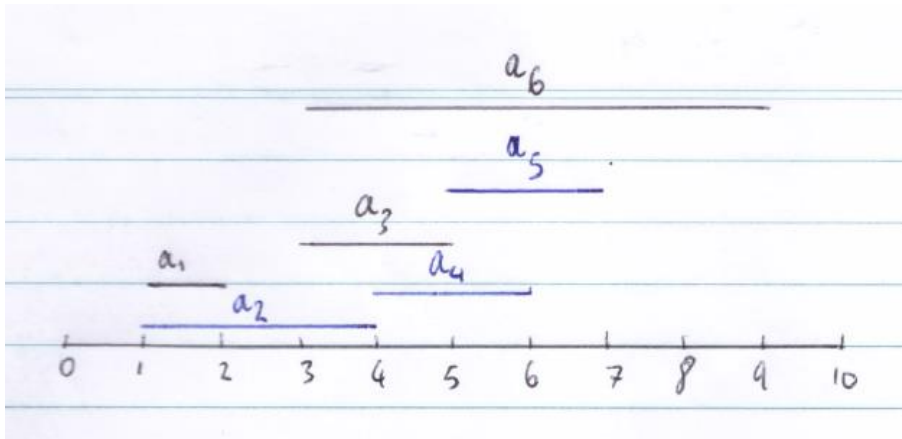 a6
a5
a3
a1 a4
a2
0 1 2 3 4 5 6 7 8 9 10